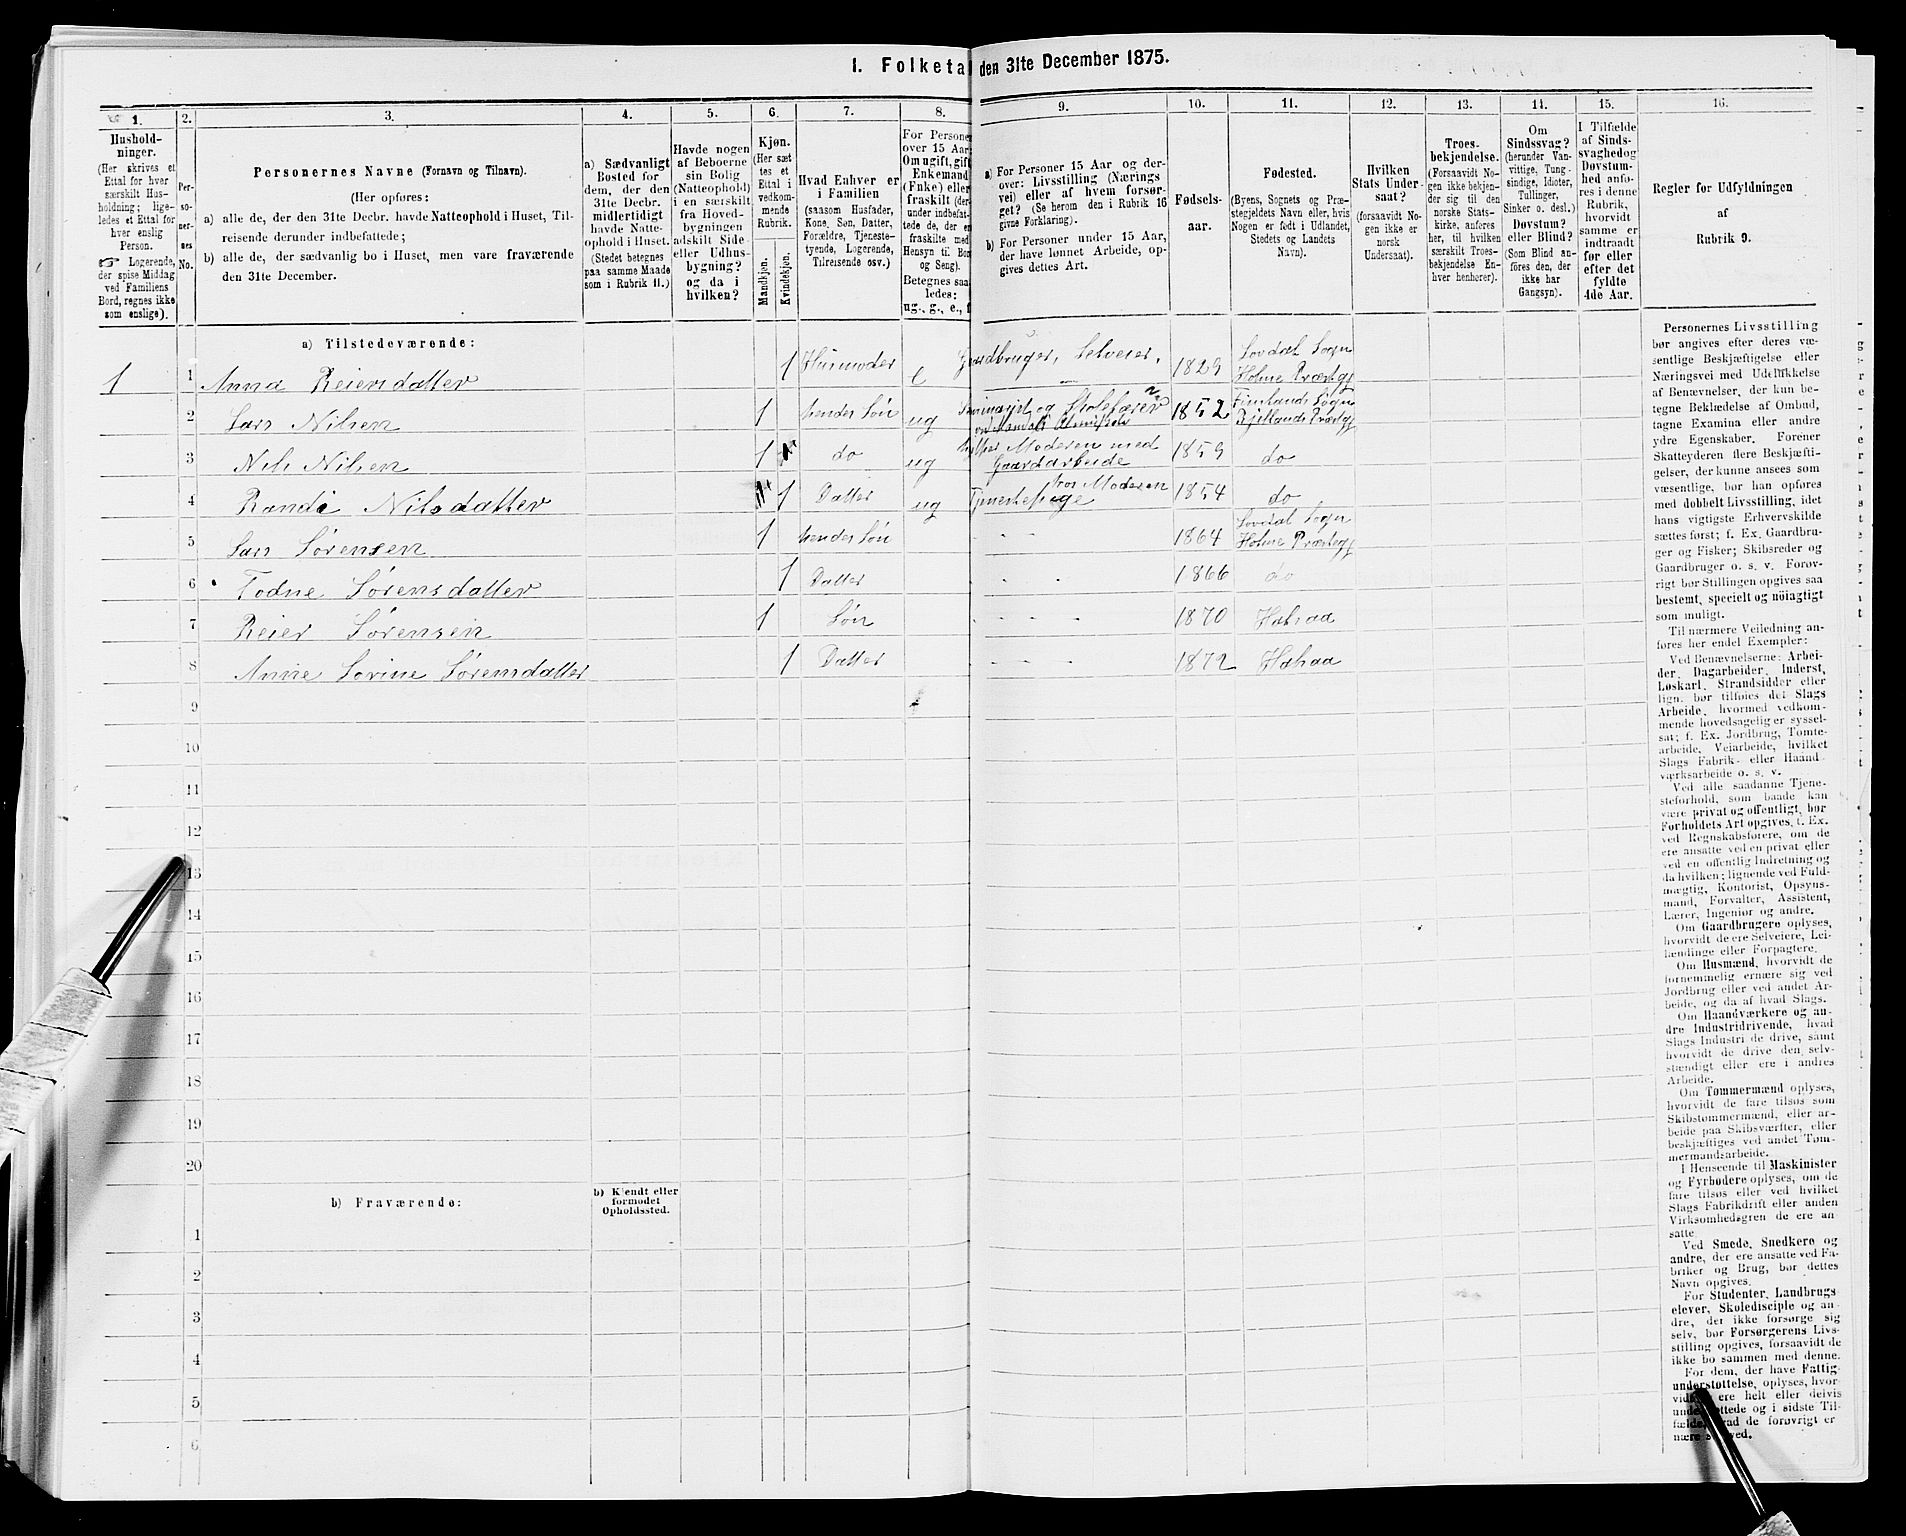 1. Folketal den 31te December 1875.
1.
Hushold-
ninger.
(Her skrives et
Ettal for hver
særskilt Hus-
holdning; lige-
ledes et Ettal for
hver enslig
Person.
☞ Logerende,
der spise Middag
ved Familiens
Bord, regnes ikke
som enslige).
2.
Per-
so-
ner-
nes
No.
3.
Personernes Navne (Fornavn og Tilnavn).
(Her opføres:
a) alle de, der den 31te Decbr. havde Natteophold i Huset, Til-
reisende derunder indbefattede;
b) alle de, der sædvanlig bo i Huset, men vare fraværende
den 31te December.
4.
a) Sædvanligt
Bosted for
dem, der den
31te Decbr.
midlertidigt
havde Natte-
ophold i Huset.
(Stedet betegnes
paa samme Maade
som i Rubrik 11.)
5.
Havde nogen
af Beboerne
sin Bolig
(Natteophold)
i en særskilt
fra Hoved-
bygningen
adskilt Side-
eller Udhus-
bygning?
og da i
hvilken?
6.
Kjøn.
(Her sæt-
tes et
Ettal i
vedkom-
mende
Rubrik.
Mandkjøn.
Kvindekjøn.
7.
Hvad Enhver er
i Familien
(saasom Husfader,
Kone, Søn, Datter,
Forældre, Tjeneste-
tyende, Logerende,
Tilreisende osv.)
8.
For Persone
over 15 Aar:
Om ugift, gift
Enkemand
(Enke) eller
fraskilt (der-
under indbefat-
tede de, der er
fraskilte med
Hensyn til Bor
og Seng).
Betegnes saa
ledes:
ug., g., e., f
9.
a) For Personer 15 Aar og der-
over: Livsstilling (Nærings
vei) eller af hvem forsør-
get? (Se herom den i Rubrik 16
givne Forklaring).
b) For Personer under 15 Aar,
der have lønnet Arbeide, op-
gives dettes Art.
10.
Fødsels-
aar.
11.
Fødested.
(Byens, Sognets og Præ-
stegjeldets Navn eller, hvis
Nogen er født i Udlandet,
Stedets og Landets
Navn).
12.
Hvilken
Stats Under-
saat?
(forsaavidt No-
gen ikke er
norsk
Undersaat).
13.
Troes-
bekjendelse.
(Forsaavidt No-
gen ikke bekjen-
der sig til den
norske Stats-
kirke, anføres
her, til hvilken
særskilt Troes-
bekjendelse En-
hver henhører).
14.
Om
Sindssvag?
(herunder Van-
vittige, Tung-
sindige, Idioter,
Tullinger,
Sinker o. desl.)
Døvstum?
eller Blind?
(Som Blind an-
føres den, der
ikke har
Gangsyn).
15.
I Tilfælde
af Sinds-
svaghed og
Døvstum-
hed anfø-
res i denne
Rubrik,
hvorvidt
samme er
indtraadt
før eller
efter det
fyldte
4de Aar.
16.
Regler for Udfyldningen
af
Rubrik 9.
a) Tilstedeværende:
1 1 Anna Reiersdatter 1 Husmoder e Gaardbruger, Selveier, 1829 Lovdal Sogn Holme Præstegj
2 Lars Nilsen 1 hendes Søn ug Seminarist og Skolelærer 1852 Finlands Sogn Bjellands Præstegj
3 Nils Nilsen 1 do ug Moderen med Gaardarbeide 1859 do
4 Randi Nilsdatter 1 Datter ug Tjenestepige hos Moderen 1854 do
5 Lars Sørensen 1 hendes Søn 1864 Lovdal Sogn Holme Præstegj
6 Todne Sørensdatter 1 Datter 1866 do
7 Reier Sørensen 1 Søn 1870 Hohaa
8 Anne Sorine Sørensdatter 1 Datter 1872 Hohaa
9
10
11
12
13
14
15
16
17
18
19
20
b) Fraværende:
b) Kjendt eller
formodet
Opholdssted.
1
2
3
4
5
6
Personernes Livsstilling
bør angives efter deres væ-
sentlige Beskjæftigelse eller
Næringsvei med Udelukkelse
af Benævnelser, der kun be-
tegne Beklædelse af Ombud,
tagne Examina eller andre
ydre Egenskaber. Forener
Skatteyderen flere Beskjæfti-
gelser, der kunne ansees som
væsentlige, bør han opføres
med dobbelt Livsstilling, idet
hans vigtigste Erhvervskilde
sættes først; f. Ex. Gaardbru-
ger og Fisker; Skibsreder og
Gaardbruger o. s. v. Forøv-
rigt bør Stillingen opgives saa
bestemt, specielt og nöiagtigt
som muligt.
Til nærmere Veiledning an-
føres her endel Exempler:
Ved Benævnelserne: Arbei-
der, Dagarbeider, Inderst,
Løskarl, Strandsidder eller
lign. bør tilføies det Slags
Arbeide, hvormed vedkom-
mende hovedsagelig er syssel-
sat; f. Ex. Jordbrug, Tomte-
arbeide, Veiarbeide, hvilket
Slags Fabrik- eller Haand-
værksarbeide o. s. v.
Ved alle saadanne Tjene-
steforhold, som baade kan
være privat og offentligt, bør
Forholdets Art opgives, f. Ex.
ved Regnskabsførere, om de
ere ansatte ved en privat eller
ved en offentlig Indretning og
da hvilken; lignende ved Fuld-
mægtig, Kontorist, Opsyns-
mand, Forvalter, Assistent,
Lærer, Ingeniør og andre.
Om Gaardbrugere oplyses,
hvorvidt de ere Selveiere, Lei-
lændinge eller Forpagtere.
Om Husmænd, hvorvidt de
fornemmelig ernære sig ved
Jordbrug eller ved andet Ar-
beide, og da af hvad Slags.
Om Haandværkere og an-
dre Industridrivende, hvad
Slags Industri de drive, samt
hvorvidt de drive den selv-
stændigt eller ere i andres
Arbeide.
Om Tømmermænd oplyses,
hvorvidt de fare tilsøs som
Skibstømmermænd, eller ar-
beide paa Skibsværfter, eller
beskjæftiges ved andet Tøm-
mermandsarbeide.
I Henseende til Maskinister
og Fyrbødere oplyses, om de
fare tilsøs eller ved hvilket
Slags Fabrikdrift eller anden
Virksomhedsgren de ere an-
satte.
Ved Smede, Snedkere og
andre, der ere ansatte ved Fa-
briker og Brug, bør dettes
Navn opgives.
For Studenter, Landbrugs-
elever, Skoledisciple og an-
dre, der ikke forsørge sig
selv, bør Forsørgerens Livs-
stilling opgives, forsaavidt de
ikke bo sammen med denne.
For dem, der have Fattig-
understøttelse, oplyses, hvor-
ere helt eller delvis
og i sidste Til-
de forøvrigt er